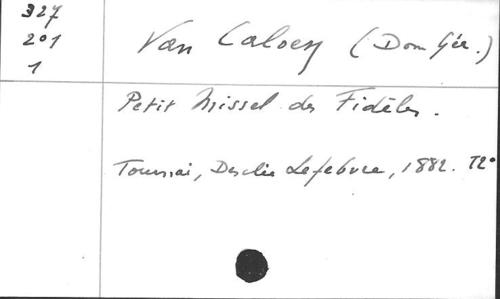 327
201
1
Van Caloen (Dom Gér.)
Petit Missel des Fidèles.
Tournai, Desclée Lefebvre, 1882. 12°